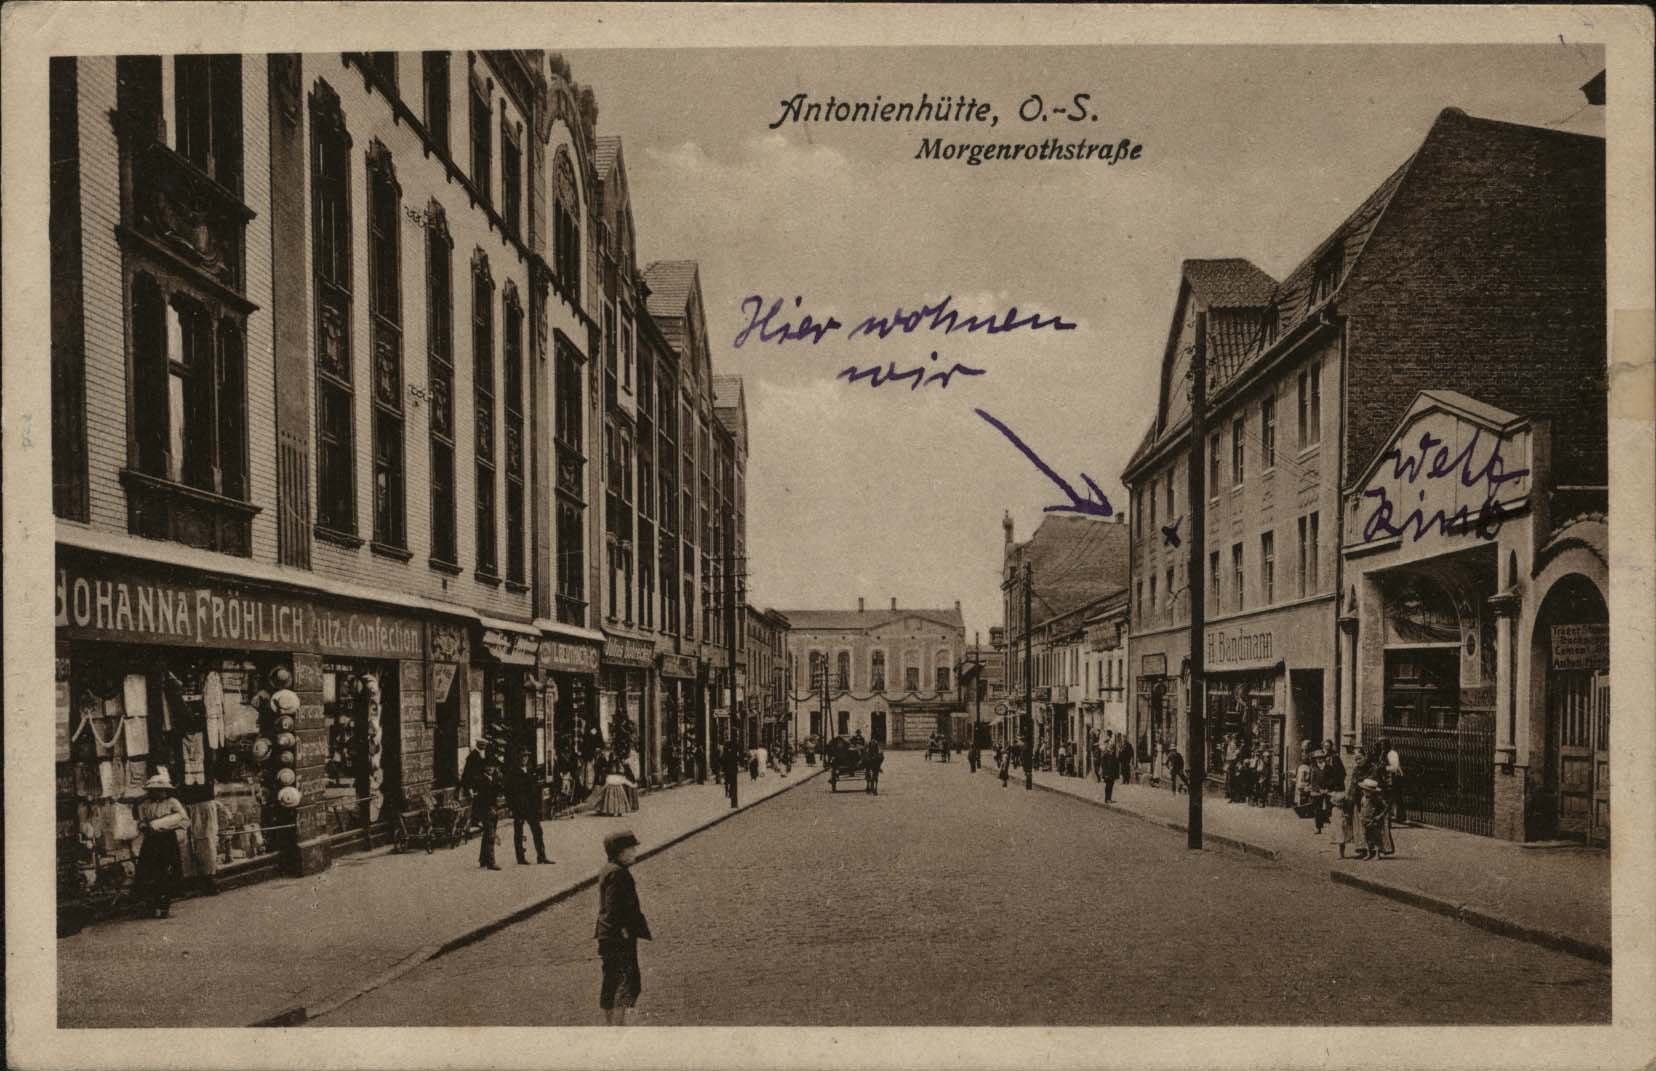 Antonienhütte, O.-S.
Morgenrothstraße
Hier wohnen
wir
Welt
Kino
JOHANNA FRÖHLICH. Putz u. Confection
H. Bandmann
Cement
Anton